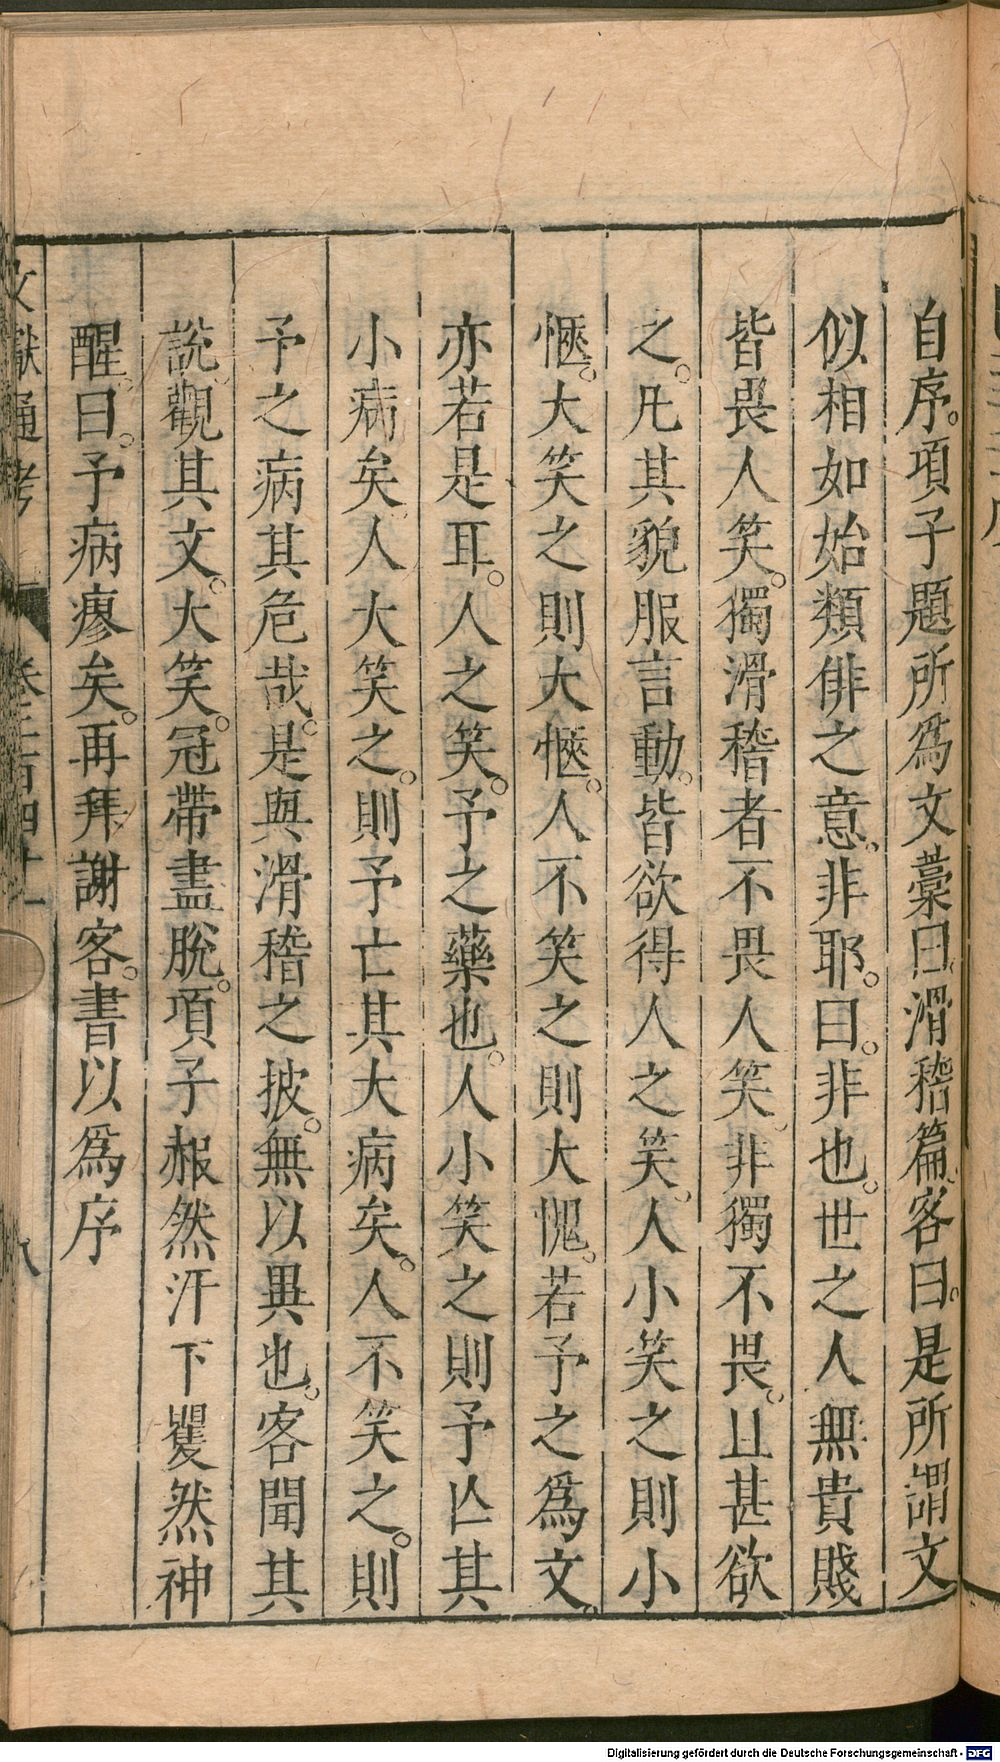 自序。項子題所爲文藁曰。滑稽篇。客曰。是所謂文
似相如始類俳之意。非耶。曰。非也。世之人無貴賤
皆畏人笑。獨滑稽者不畏人笑。非獨不畏。且甚欲
之。凡其貌服言動。皆欲得人之笑。人小笑之則小
愜。大笑之則大愜。人不笑之則大愧。若予之爲文。
亦若是耳。人之笑。予之藥也。人小笑之則予亡其
小病矣。人大笑之。則予亡其大病矣。人不笑之。則
予之病其危哉。是與滑稽之披。無以異也。客聞其
說。觀其文。大笑。冠帶盡脫。項子赧然汗下矍然神
醒。曰。予病瘳矣。再拜謝客。書以爲序
文獻通考 卷二百四十一 八
Digitalisierung gefördert durch die Deutsche Forschungsgemeinschaft - DFG